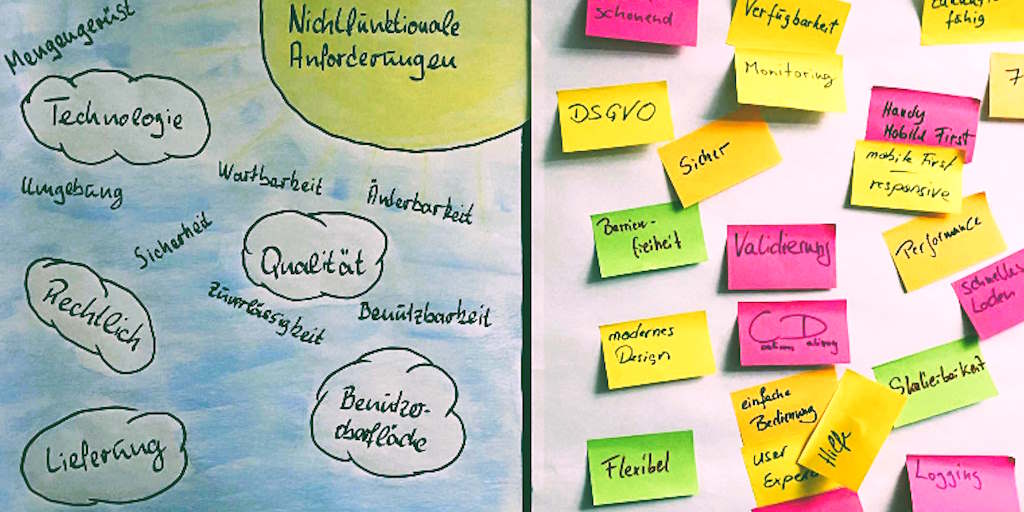 Nichtfunktionale
Anforderungen
Mengengerüst
Technologie
Umgebung
Wartbarkeit
Änderbarkeit
Sicherheit
Qualität
Rechtlich
Zuverlässigkeit
Benützbarkeit
Benützer-
oberfläche
Lieferung
schonend
Verfügbarkeit
fähig
Monitoring
7
DSGVO
Handy
Mobile First
Sicher
mobile First
responsive
Barrien-
freiheit
Validierung
Performance
schnelles
Laden
modernes
Design
CD
Skalierbarkeit
einfache
Bedienung
Hilfe
User
Flexibel
Logging